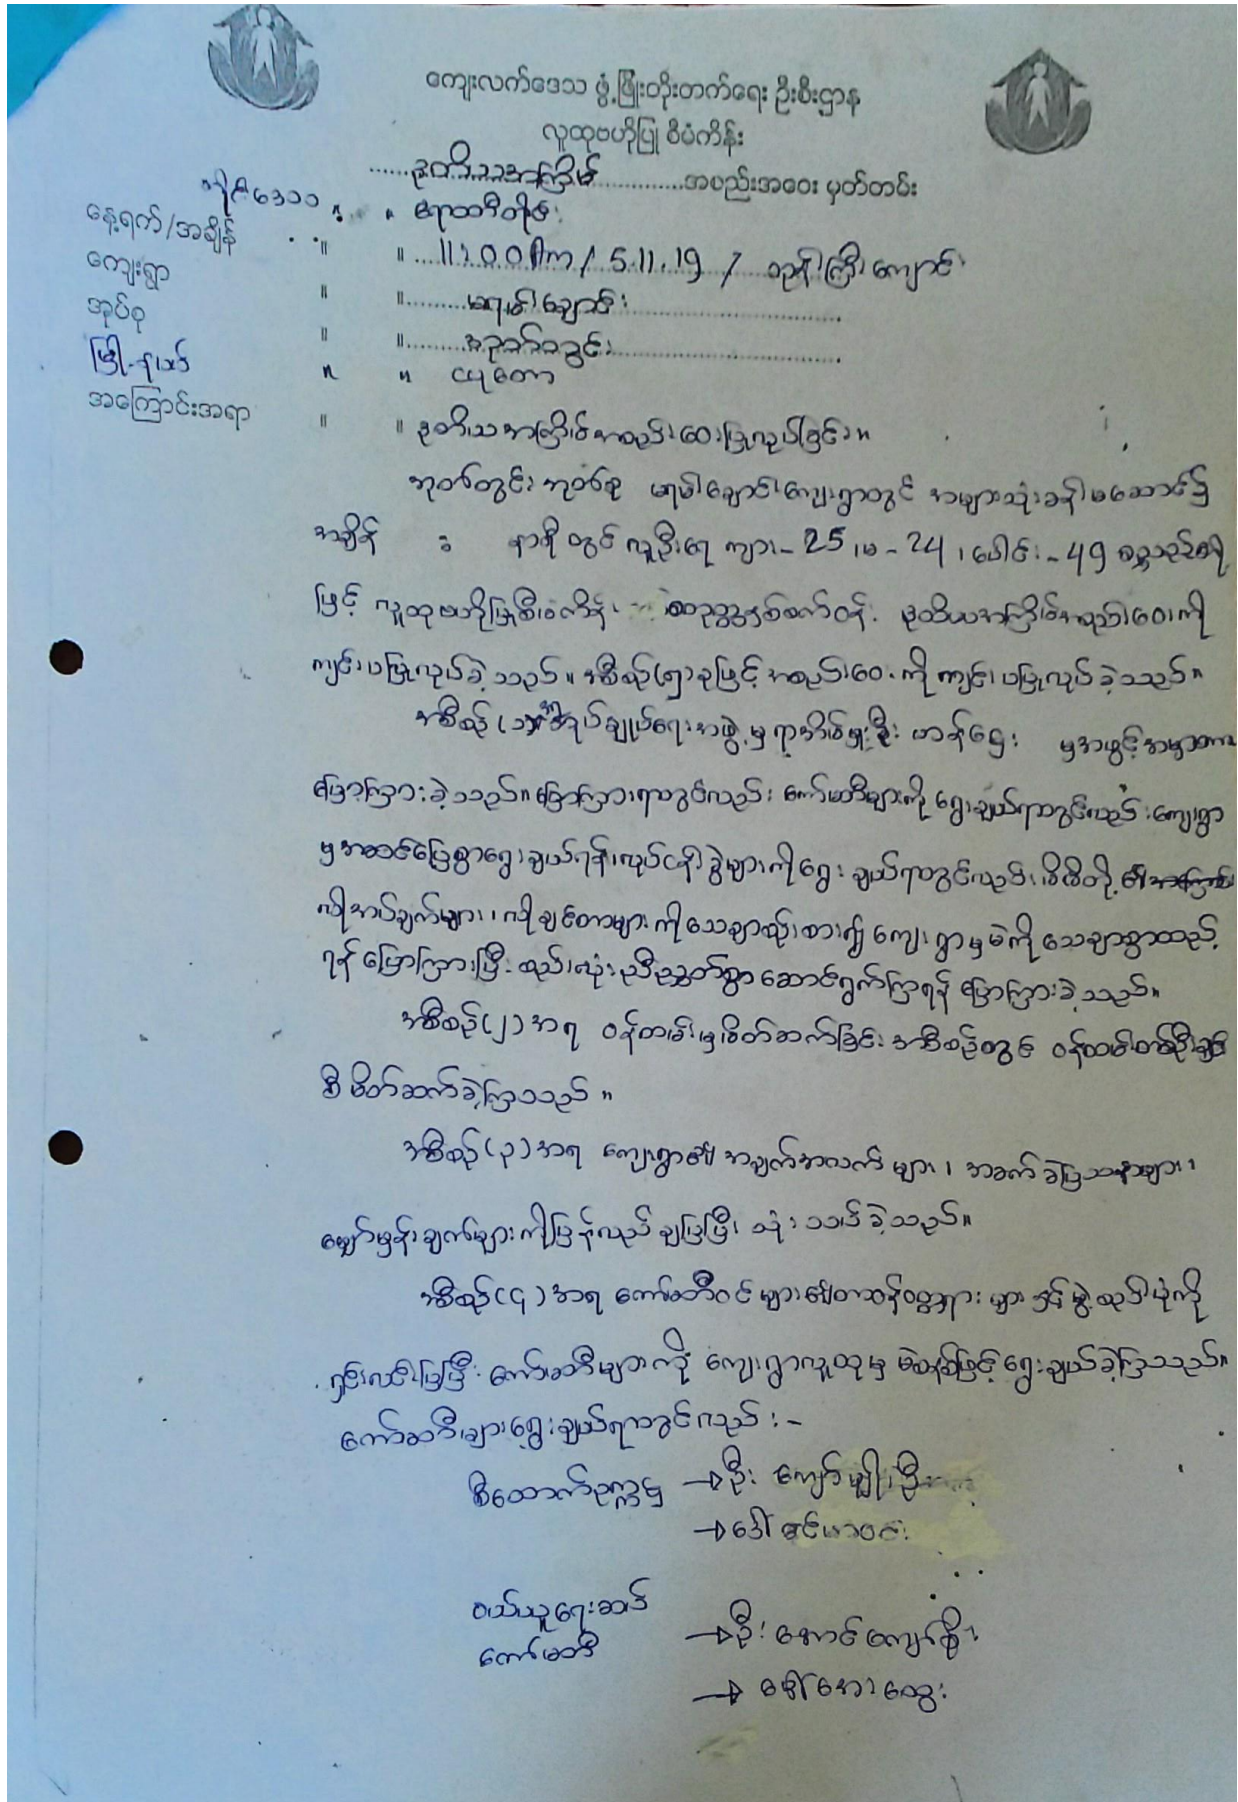 ကျေးလက်ဒေသ ဖွံ့ဖြိုးတိုးတက်ရေး ဦးစီးဌာန
လူထုဗဟိုပြု စီမံကိန်း
ဒုတိယအကြိမ် အစည်းအဝေး မှတ်တမ်း
တိုင်းဒေသ " " ဧရာဝတီတိုင်း
နေ့ရက်/အချိန် " " 11:00 Am / 5.11.19 / ဘုန်းကြီးကျောင်း
ကျေးရွာ " " မရမ်းချောင်း
အုပ်စု " "
မြို့နယ် " " ငပုတော
အကြောင်းအရာ " " ဒုတိယအကြိမ်အစည်းအဝေးပြုလုပ်ခြင်း။
အုပ်စု မရမ်းချောင်းကျေးရွာတွင်
အချိန် : နာရီတွင် လူဦးရေ ကျား - 25 ၊ မ - 24 ၊ ပေါင်း - 49
ဖြင့် လူထုဗဟိုပြုစီမံကိန်း ဒုတိယအကြိမ်အစည်းအဝေးကို
ကျင်းပပြုလုပ်ခဲ့သည်။ အစီစဉ်(၅)ခုဖြင့် အစည်းအဝေးကို ကျင်းပပြုလုပ်ခဲ့သည်။
အစီစဉ်(၁)အရ အုပ်ချုပ်ရေးအဖွဲ့မှ ရာအိမ်မှူး ဦး မှအဖွင့်အမှာစကား
ပြောကြားခဲ့သည်။ ပြောကြားရာတွင်လည်း ကော်မတီများကို ရွေးချယ်ရာတွင်လည်း ကျေးရွာ
မှအဆင်ပြေစွာရွေးချယ်ရန်၊ လုပ်ငန်းခွဲများကိုရွေးချယ်ရာတွင်လည်း မိမိတို့၏
လိုအပ်ချက်များ၊ လိုချင်တာများကိုသေချာစဉ်းစား၍ ကျေးရွာမှမဲကိုသေချာစွာထည့်
ရန်ပြောကြားပြီး စည်းလုံးညီညွတ်စွာ ဆောင်ရွက်ကြရန် ပြောကြားခဲ့သည်။
အစီစဉ်(၂)အရ ဝန်ထမ်းမှမိတ်ဆက်ခြင်း အစီစဉ်တွင် ဝန်ထမ်းတစ်ဦးချင်း
စီမိတ်ဆက်ခဲ့ကြသည်။
အစီစဉ်(၃)အရ ကျေးရွာ၏ အချက်အလက်များ၊ အခက်ခဲပြဿနာများ၊
မျှော်မှန်းချက်များကိုပြန်လည်ချပြပြီး သုံးသပ်ခဲ့သည်။
အစီစဉ်(၄)အရ ကော်မတီဝင်များ၏တာဝန်ဝတ္တရားများနှင့် ဖွဲ့စည်းပုံကို
ရှင်းလင်းပြပြီး ကော်မတီများကို ကျေးရွာလူထုမှ မဲစနစ်ဖြင့်ရွေးချယ်ခဲ့ကြသည်။
ကော်မတီများရွေးချယ်ရာတွင်လည်း -
စီထောက်ဥက္ကဋ္ဌ → ဦးကျော်မျိုးဦး
→ ဒေါ်
ဝယ်ယူရေးဆပ် → ဦးအောင်ကျော်စိုး
ကော်မတီ
→ ဒေါ်အေးထွေး